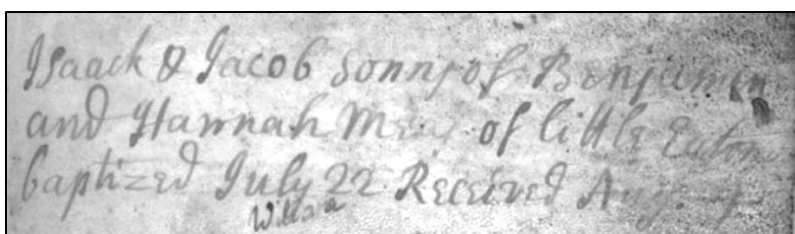 Isaack & Jacob sonns of Benjamin
and Hannah of little Eaton
baptized July 22 Received